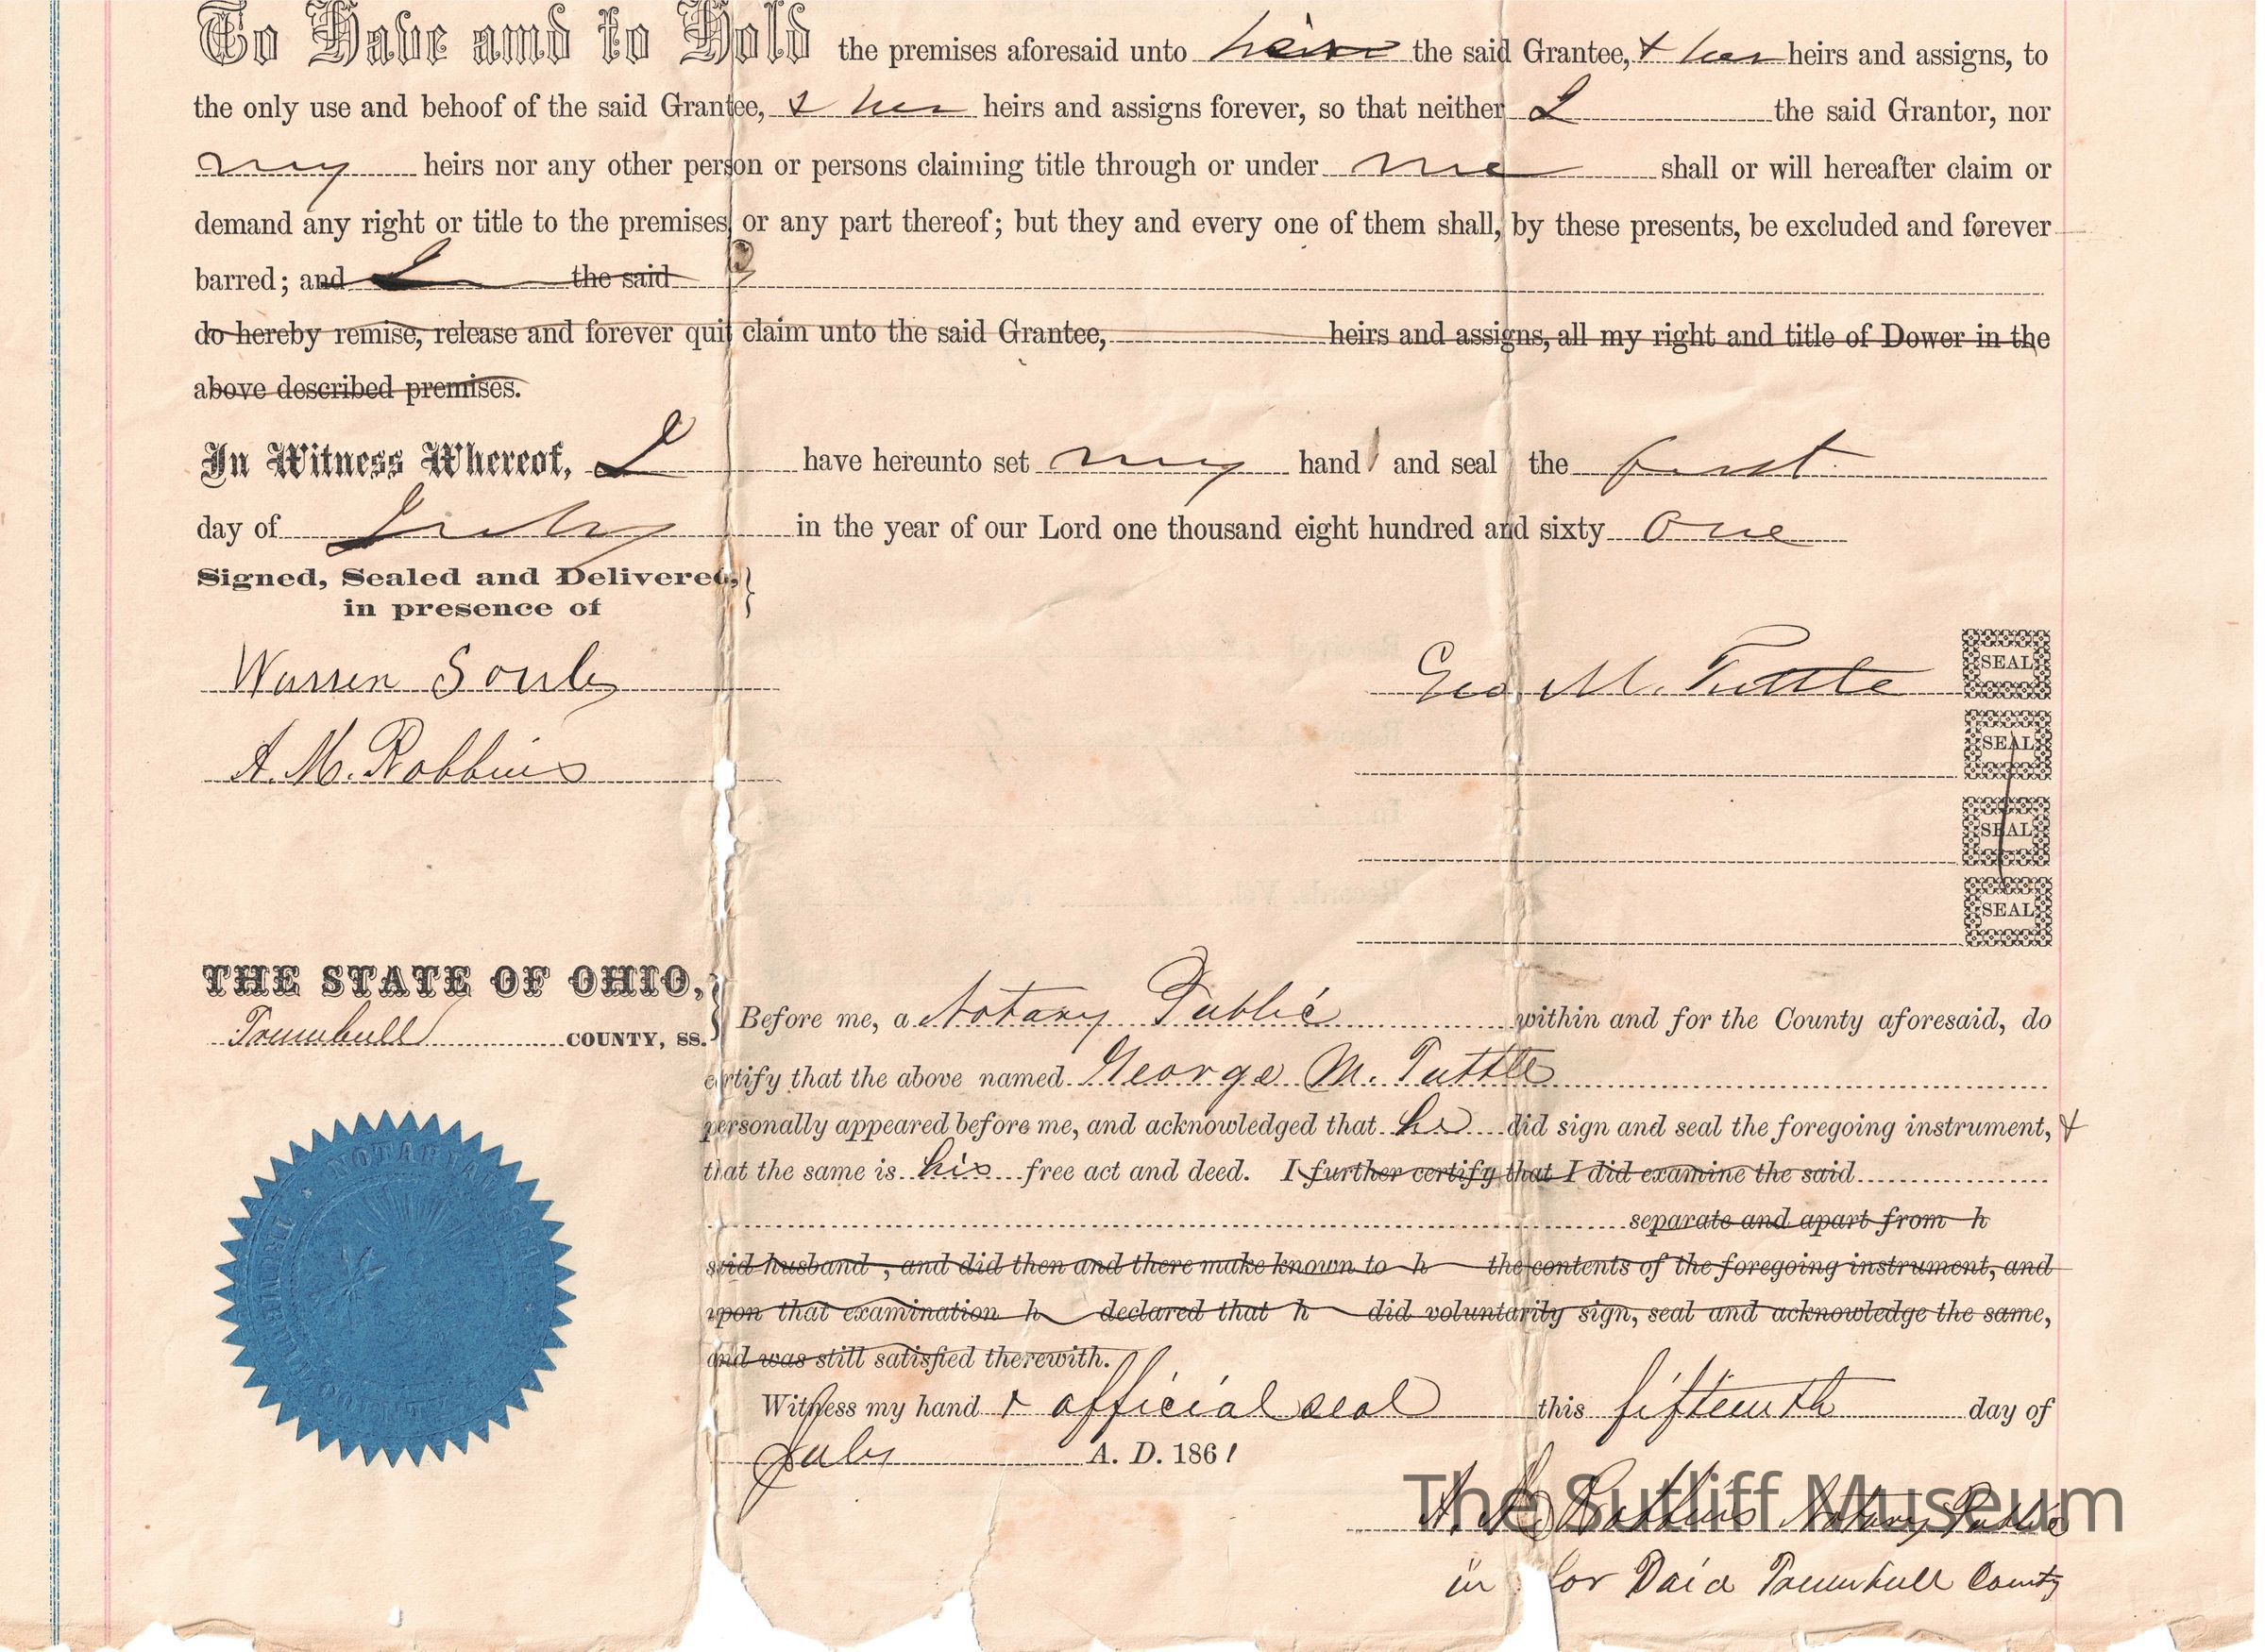 To Have amd to Hold the premises aforesaid unto the said Grantee, & her heirs and assigns, to
the only use and behoof of the said Grantee, & her heirs and assigns forever, so that neither I the said Grantor, nor
my heirs nor any other person or persons claiming title through or under me shall or will hereafter claim or
demand any right or title to the premises or any part thereof; but they and every one of them shall, by these presents, be excluded and forever
barred; and I the said
do hereby remise, release and forever quit claim unto the said Grantee, heirs and assigns, all my right and title of Dower in the
above described premises.
In Witness Whereof, I have hereunto set my hand and seal the first
day of July in the year of our Lord one thousand eight hundred and sixty one
Signed, Sealed and Delivered,
in presence of
Warren Geo M. Tuttle SEAL
A. M. Robbins SEAL
SEAL
SEAL
THE STATE OF OHIO,
Trumbull COUNTY, SS.
Before me, a Notary Public within and for the County aforesaid, do
certify that the above named George M. Tuttle
personally appeared before me, and acknowledged that he did sign and seal the foregoing instrument, &
that the same is his free act and deed. I further certify that I did examine the said
separate and apart from h
said husband, and did then and there make known to h the contents of the foregoing instrument, and
upon that examination h declared that h did voluntarily sign, seal and acknowledge the same,
and was still satisfied therewith.
Witness my hand & official seal this fifteenth day of
July A. D. 1861
NOTARIAL SEAL
A. M. Robbins Notary Public
The Sutliff Museum
in for Said Trumbull County